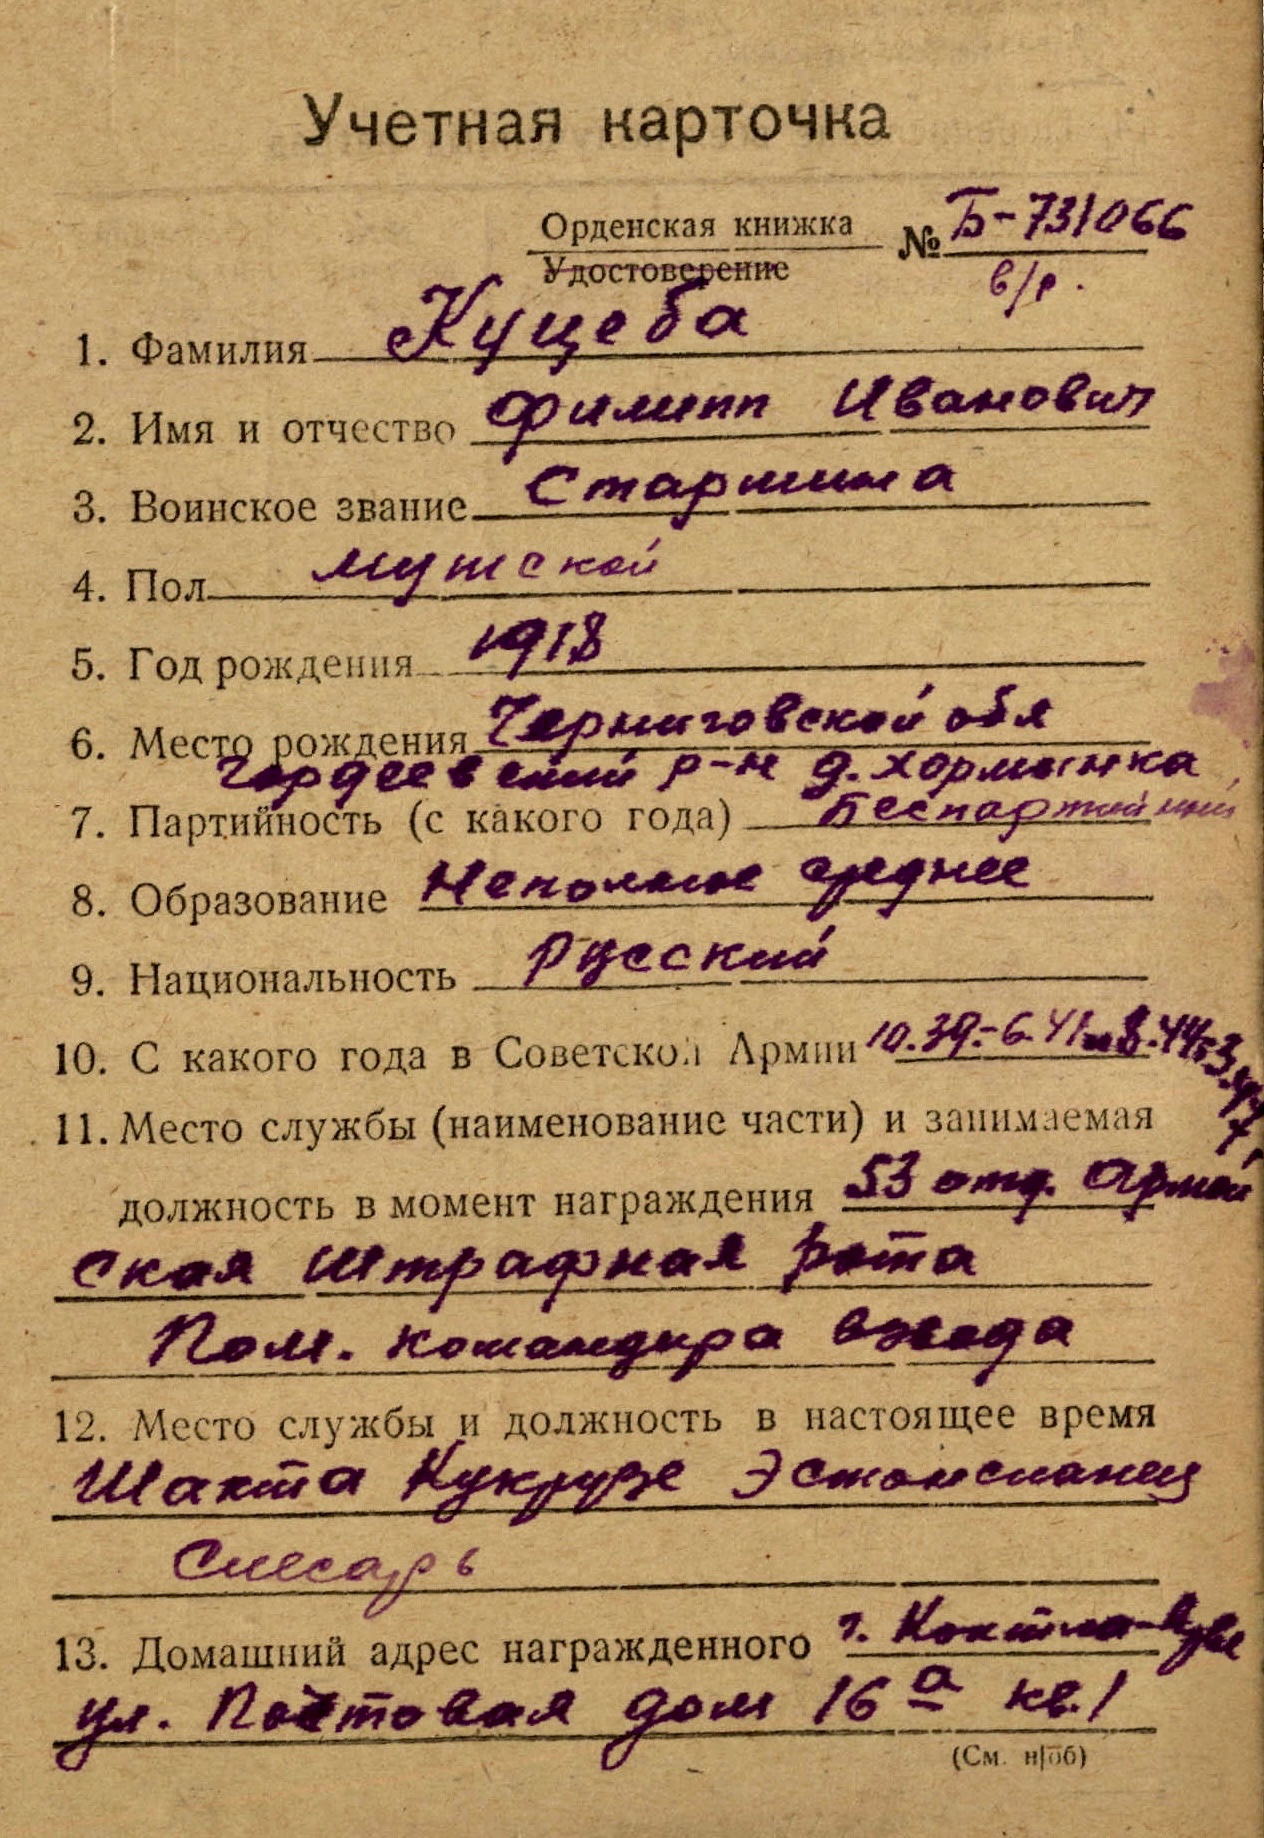 Учетная карточка
Орденская книжка № Б-731066
Удостоверение в/р.
1. Фамилия Куцеба
2. Имя и отчество Филипп Иванович
3. Воинское звание Старшина
4. Пол мужской
5. Год рождения 1918
6. Место рождения Черниговской обл
Гордеевский р-н д. Хормынка
7. Партийность (с какого года) Беспартийный
8. Образование Неполное среднее
9. Национальность Русский
10. С какого года в Советской Армии 10.39.-6.41 и 8.44
11. Место службы (наименование части) и занимаемая
должность в момент награждения 53 отд. Армей
ская Штрафная рота
Пом. командира взвода
12. Место службы и должность в настоящее время
Шахта Кукрузе Эстонсланец
Слесарь
13. Домашний адрес награжденного г. Кохтла-Ярве
ул. Почтовая дом 16а кв. 1
(См. н/об)